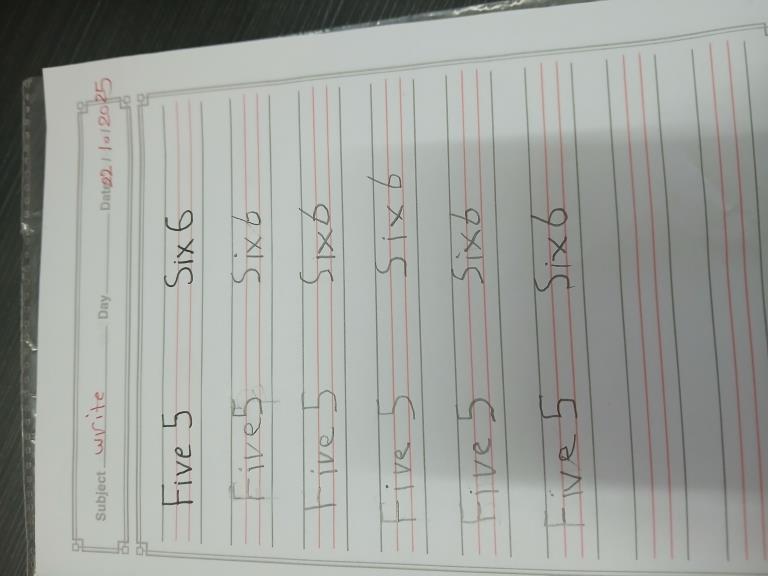 Subject write Day Date 22/10/2025
Five 5 Six 6
Five 5 Six 6
Five 5 Six 6
Five 5 Six 6
Five 5 Six 6
Five 5 Six 6